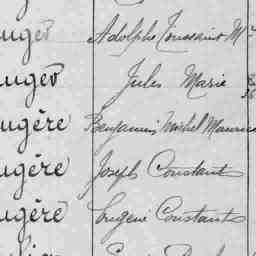 uger Adolphe Toussaint M
uger Jules Marie
ugère Benjamin Michel Maurice
ugère Joseph Constant
ugère Eugène Constant